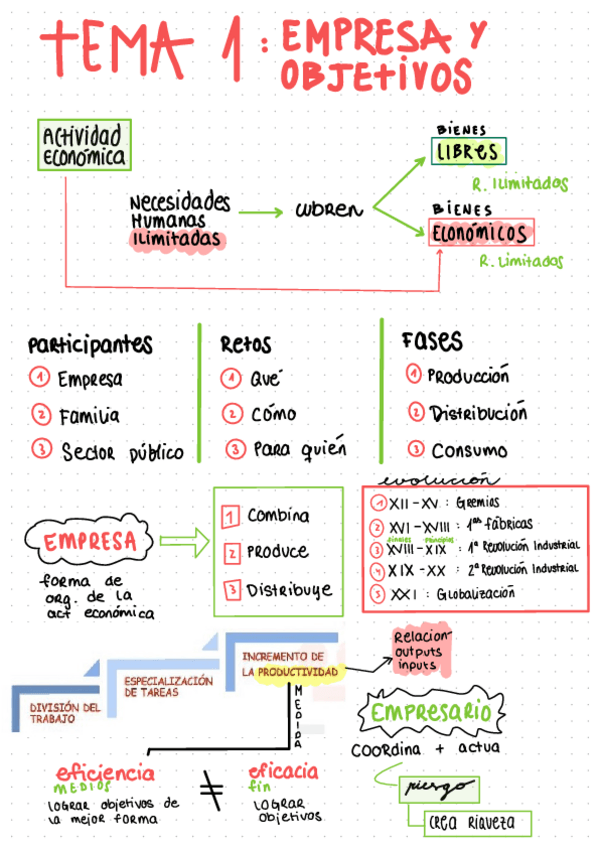 TEMA 1: EMPRESA Y
OBJETIVOS
Actividad
económica
Necesidades
Humanas
Ilimitadas
cubren
BIENES
LIBRES
R. Ilimitados
BIENES
ECONÓMICOS
R. Limitados
Participantes
1 Empresa
2 Familia
3 Sector público
Retos
1 Qué
2 Cómo
3 Para quién
Fases
1 Producción
2 Distribución
3 Consumo
EMPRESA
forma de
org. de la
act económica
1 Combina
2 Produce
3 Distribuye
evolución
1 XII - XV : Gremios
2 XVI - XVIII : 1as fábricas
finales principios
3 XVIII - XIX : 1ª Revolución Industrial
4 XIX - XX : 2ª Revolución Industrial
5 XXI : Globalización
DIVISIÓN DEL
TRABAJO
ESPECIALIZACIÓN
DE TAREAS
INCREMENTO DE
LA PRODUCTIVIDAD
Relacion
outputs
inputs
MEDIDA
eficiencia
MEDIOS
lograr objetivos de
la mejor forma
≠
eficacia
fin
lograr
objetivos
EMPRESARIO
coordina + actua
riesgo
crea riqueza